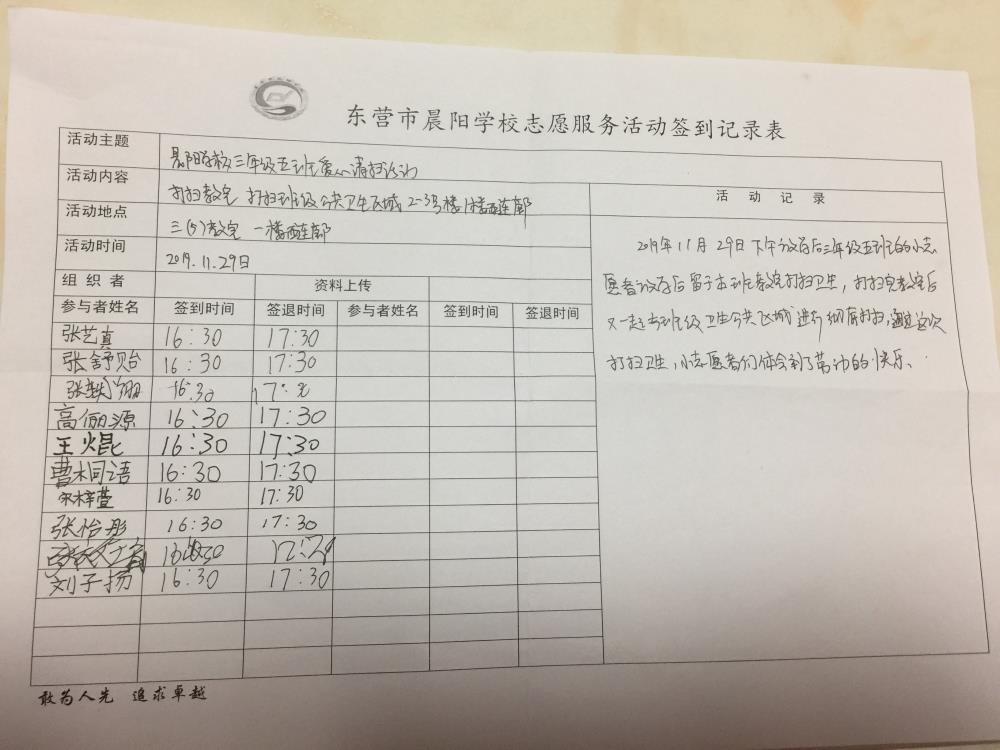 东营市晨阳学校志愿服务活动签到记录表
活动主题 晨阳学校三年级五班爱心清扫活动
活动内容 打扫教室 打扫班级公共卫生区域2-3号楼1楼西连廊
活动地点 三(5)教室 一楼西连廊
活动时间 2019.11.29日
活动记录
2019年11月29日下午放学后三年级五班的小志
愿者放学后留于本班教室打扫卫生,打扫完教室后
又一起去班级卫生公共区域进行彻底打扫,通过这次
打扫卫生,小志愿者们体会到了劳动的快乐.
组织者 资料上传
参与者姓名 签到时间 签退时间 参与者姓名 签到时间 签退时间
张艺真 16:30 17:30
张舒贻 16:30 17:30
张 16:30
高俪源 16:30 17:30
王焜 16:30 17:30
曹桐语 16:30 17:30
宋梓萱 16:30 17:30
张怡彤 16:30 17:30
刘子扬 16:30 17:30
敢为人先 追求卓越